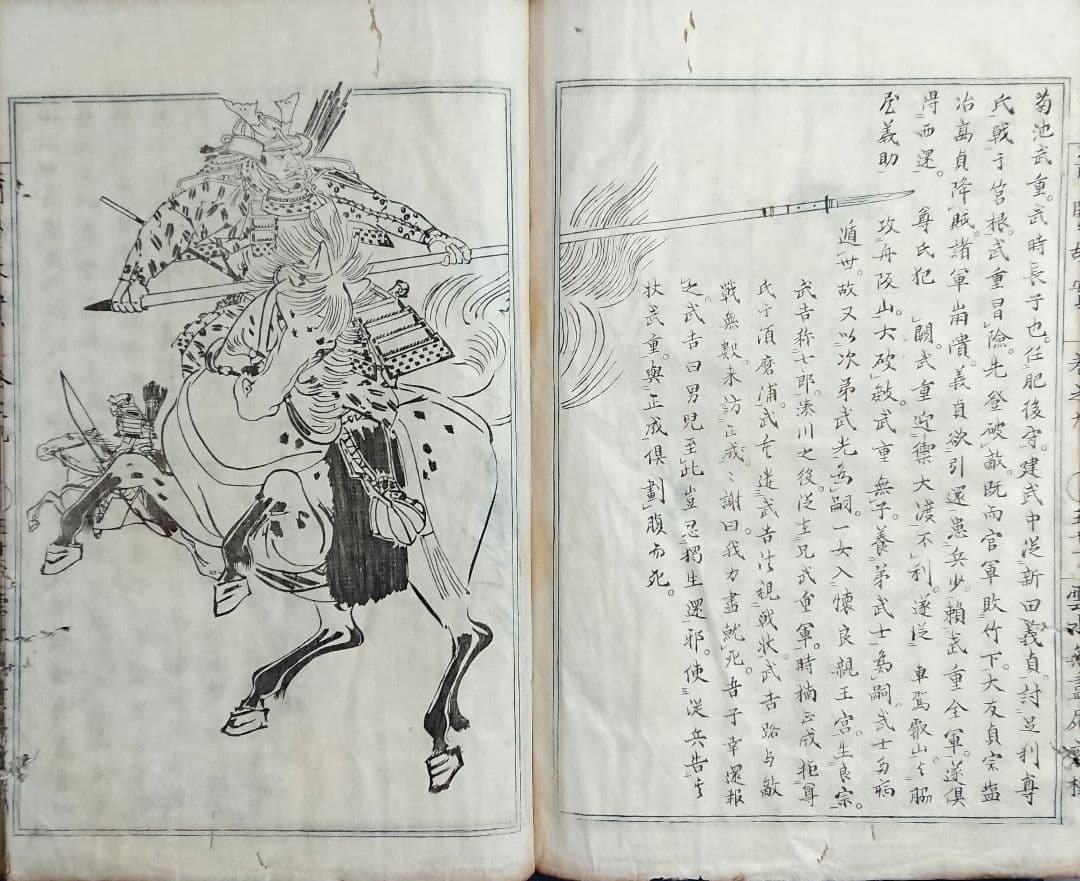 菊池武重。武時長子也。任肥後守。建武中從新田義貞。討足利尊
氏戰于筥根。武重冒險。先登破敵既而官軍敗竹下。大友貞宗塩
冶高貞降賊。諸軍崩潰。義貞欲引還患兵少。賴武重全軍。遂俱
得西還。尊氏犯 闕。武重迎禦大渡不利。遂從 車駕叡山。与脇
屋義助攻舟阪山大破敵。武重無子。養弟武士為嗣。武士多病
遁世。故又以次弟武光為嗣。一女入懷良親王宮。生良宗。
武吉称七郎。湊川之役。從其兄武重軍。時楠正成拒尊
氏于須磨浦。武重遣武吉往視戦状。武吉路与敵
戦無數。来訪正成。〻謝曰。我力盡就死。吾子幸還報
之。武吉曰男児至此豈忍獨生還邪。使從兵告其
状武重。與正成俱劃腹而死。